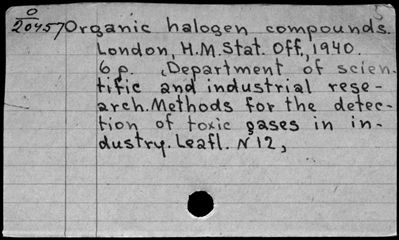 O
20457 Organic halogen compounds.
London, H.M. Stat. Off., 1940.
6 p. (Department of scien-
tific and industrial rese-
arch. Methods for the detec-
tion of toxic gases in in-
dustry. Leafl. N 12,